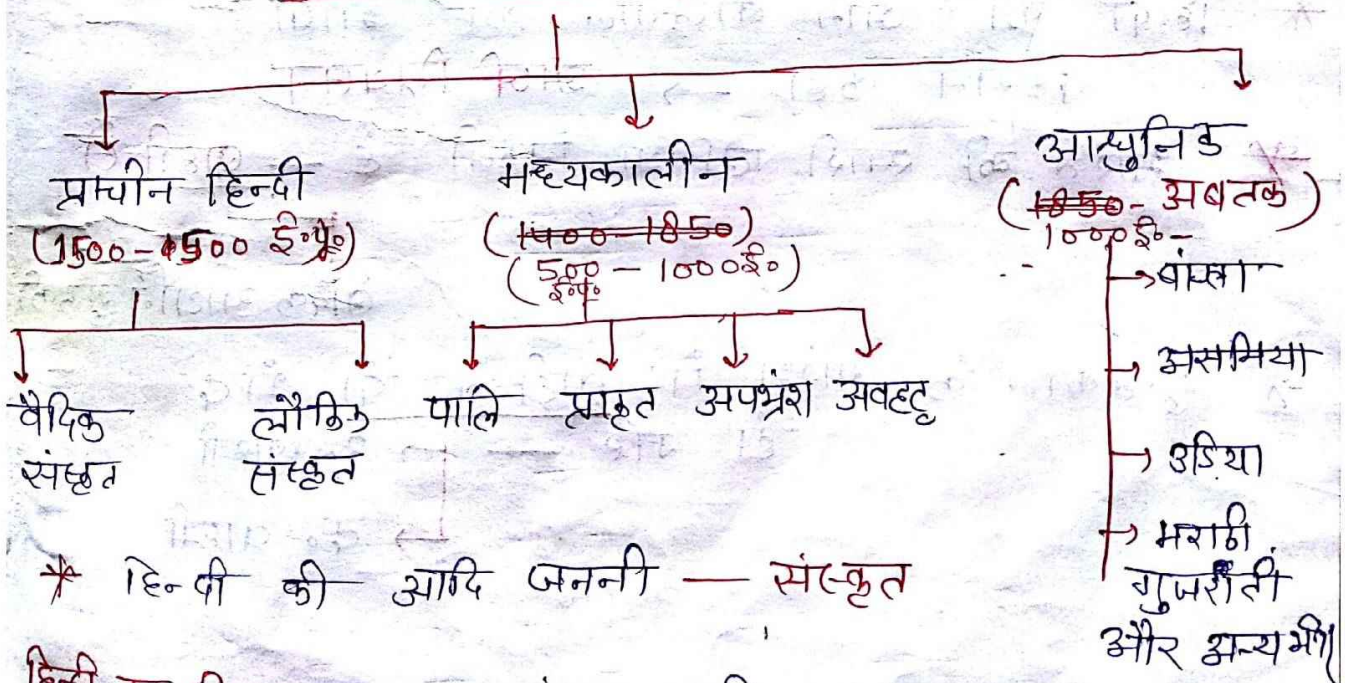 प्राचीन हिन्दी
(1500-1500 ई॰पू॰)
वैदिक
संस्कृत
लौकिक
संस्कृत
मध्यकालीन
(1400-1850)
(500 - 1000ई॰)
ई॰पू॰
पालि प्राकृत अपभ्रंश अवहट्ट
आधुनिक
(1850 - अबतक)
1000ई॰-
→ बांग्ला
→ असमिया
→ उडिया
→ मराठी
गुजराती
और अन्य भी।
* हिन्दी की आदि जननी — संस्कृत
हिन्दी